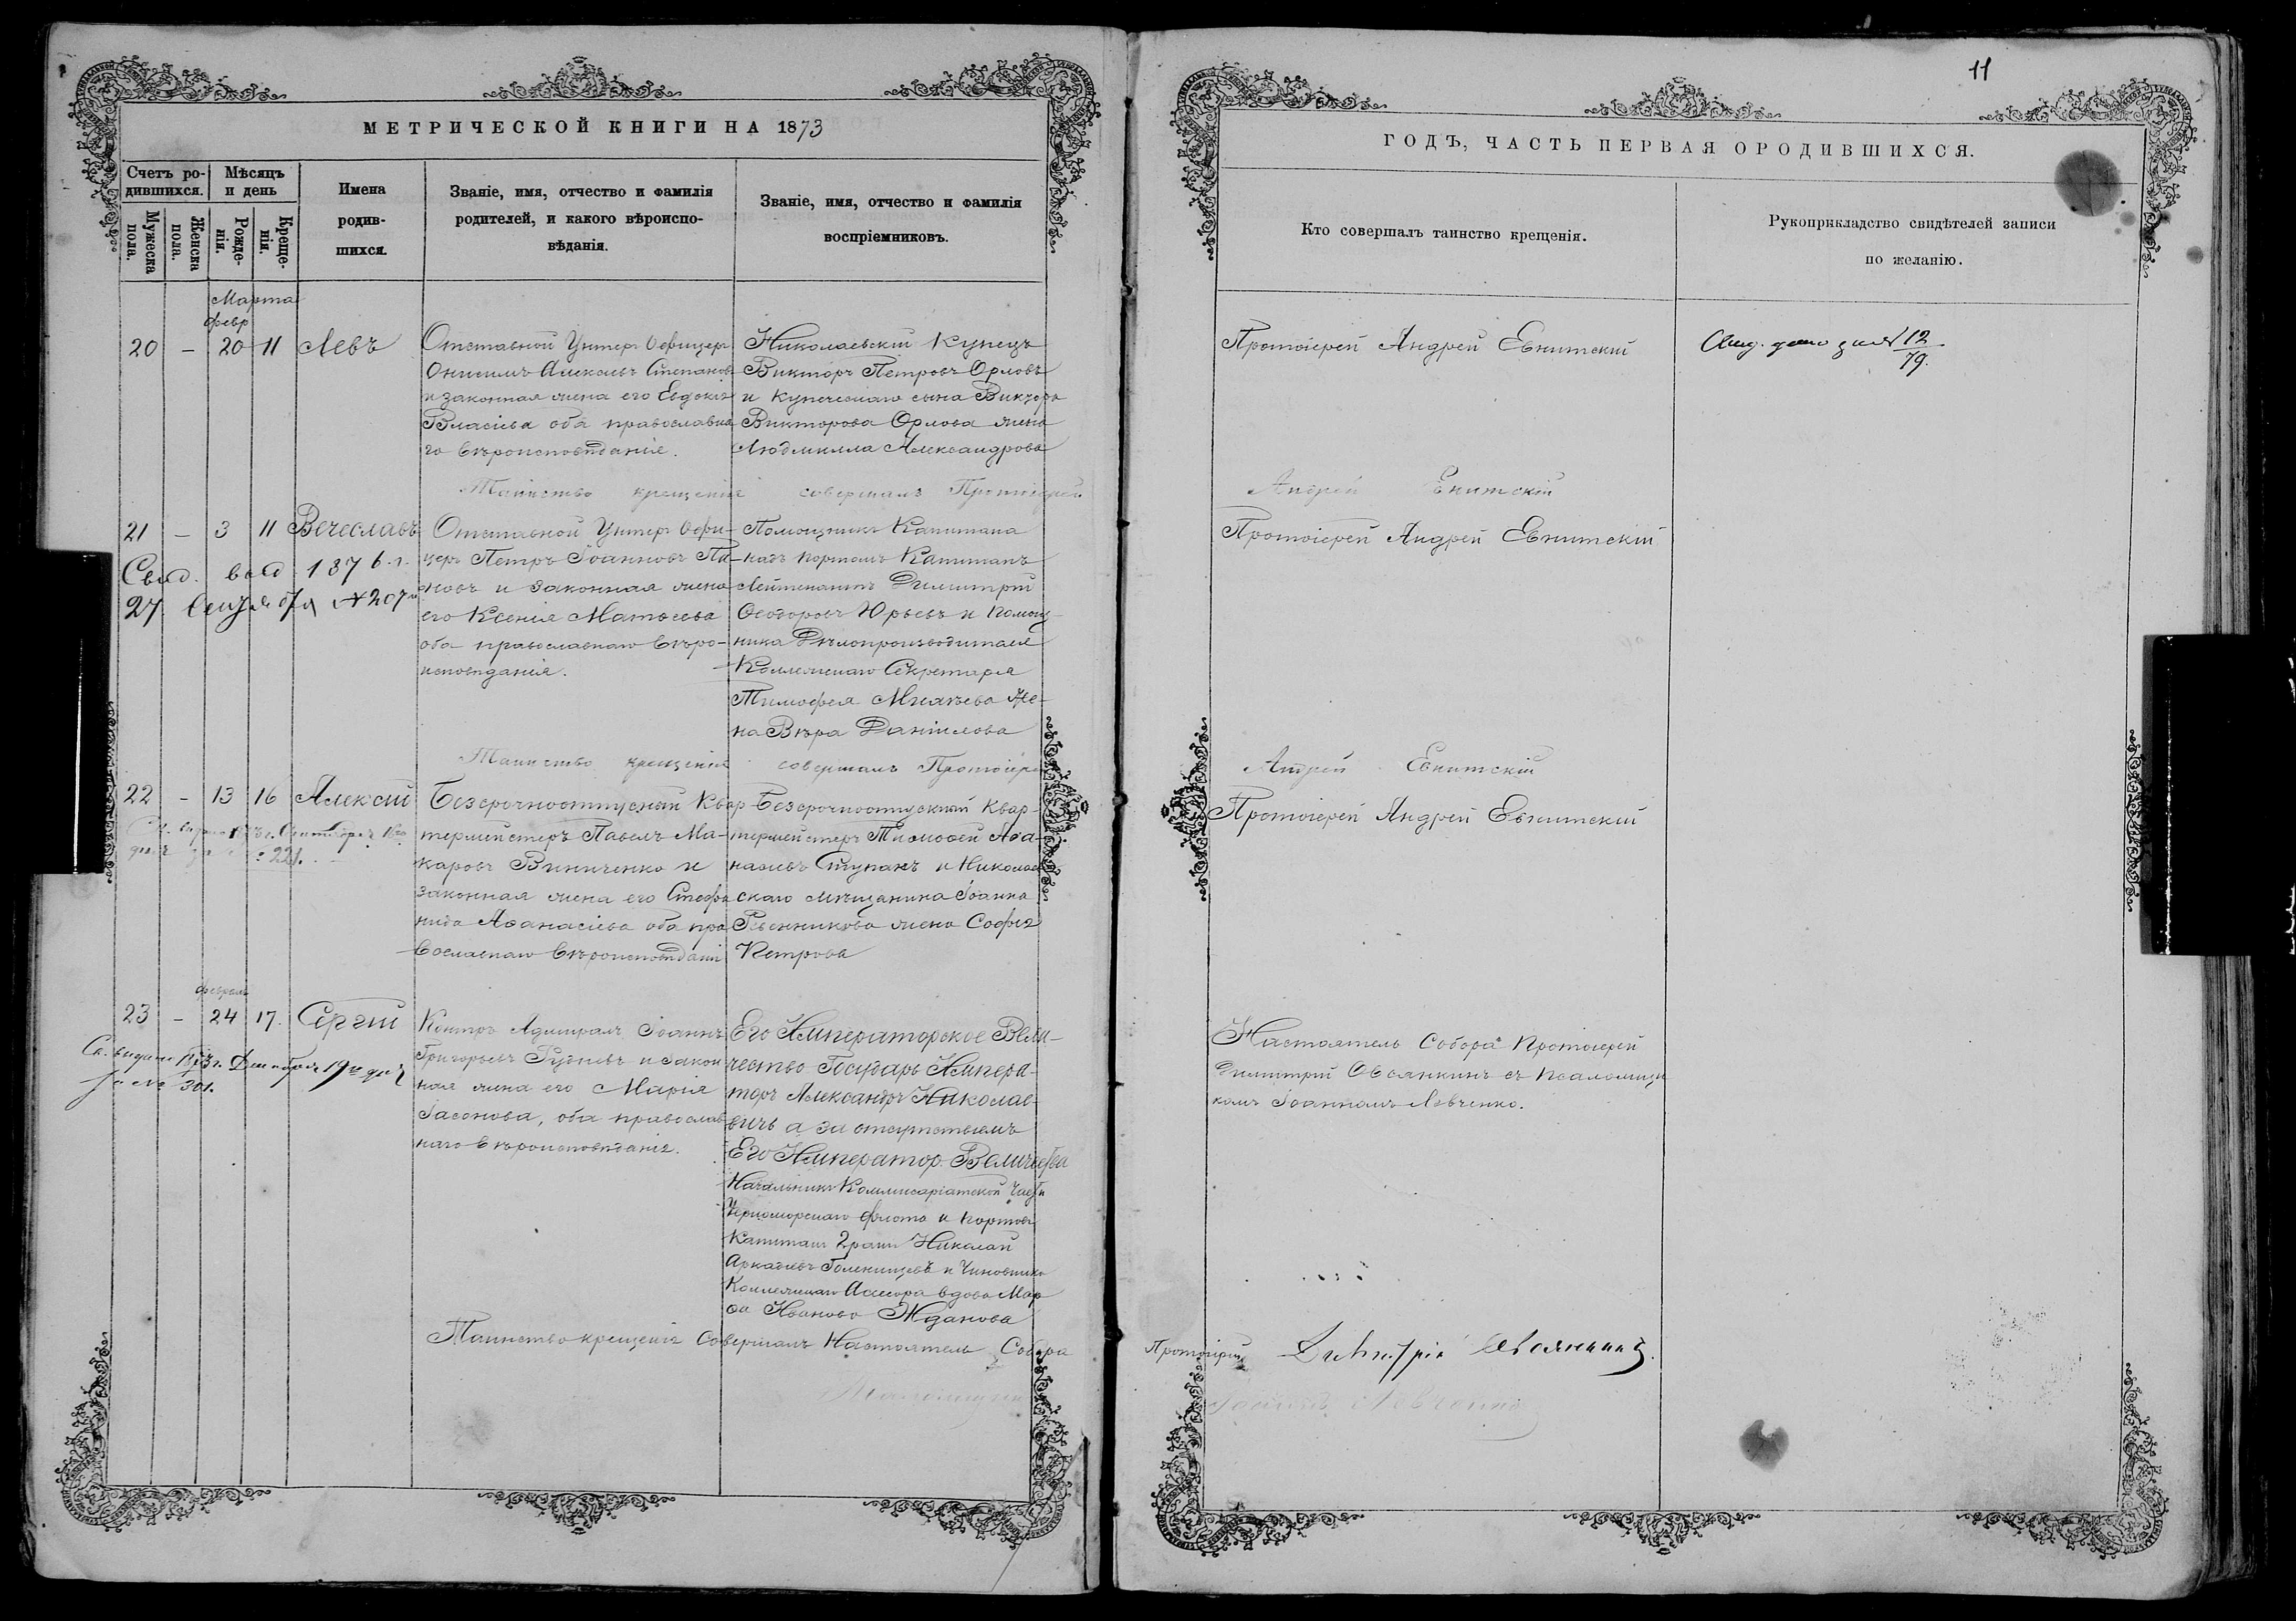 11
МЕТРИЧЕСКОЙ КНИГИ НА 1873
ГОДЪ, ЧАСТЬ ПЕРВАЯ ОРОДИВШИХСЯ.
Счетъ ро-
дившихся.
Мужеска
пола.
Женска
пола.
Мѣсяцъ
и день
Рожде-
нія.
Креще-
нія.
Имена
родив-
шихся.
Званіе, имя, отчество и фамилія
родителей, и какого вѣроиспо-
вѣданія.
Званіе, имя, отчество и фамилія
воспріемниковъ.
Кто совершалъ таинство крещенія.
Рукоприкладство свидѣтелей записи
по желанію.
Марта
февр
20 - 20 11 Левъ
Отставной Унтеръ Офицеръ
Онисимъ Степановъ
и законная жена его Евдокія
Власіева оба православна
го вѣроисповѣданія.
Николаевскій Купецъ
Викторъ Петровъ Орловъ
и купеческаго сына Виктора
Викторова Орлова жена
Людмилла Александрова
Протоіерей Андрей Евнитскій
12
79.
Таинство крещенія совершалъ Протоіерей
Андрей Евнитскій
21 - 3 11 Вечеславъ
Свид. выд 1876 г.
27 Сентября № 207
Отставной Унтеръ Офи-
церъ Петръ Іоанновъ Па-
новъ и законная жена
его Ксенія Матвеева
оба православнаго вѣро-
исповѣданія.
Помощникъ Капитана
надъ портомъ Капитанъ
Лейтенантъ Димитрій
Ѳеодоровъ Юрьевъ и помощ-
ника Дѣлопроизводителя
Коллежскаго Секретаря
Тимофея Михѣева Же-
на Вѣра Даніилова
Протоіерей Андрей Евнитскій
Таинство крещенія совершалъ Протоіерей
Андрей Евнитскій
22 - 13 16 Алексій
221.
Безсрочноотпускный Квар
термейстеръ Павелъ Ма-
каровъ Винниченко и
законная жена его Стефа
нида Аѳанасіева оба пра
вославнаго вѣроисповѣданія
Безсрочноотпускный Квар-
термейстеръ Тимоѳей Аѳа-
насьевъ Ступакъ и Николаев
скаго мѣщанина Іоанна
жена Софія
Петрова
Протоіерей Андрей Евнитскій
февраля
23 - 24 17. Сергій
Св. выдано 1873 г. Декабря 19го дня
за № 301.
Контръ Адмиралъ Іоаннъ
Григорьевъ Рудневъ и закон
ная жена его Марія
Іасонова, оба православ
наго вѣроисповѣданія.
Его Императорское Вели-
чество Государь Импера-
торъ Александръ Николае-
вичъ а за отсутствіемъ
Его Император. Величества
Начальникъ Коммисаріатской Части
Черноморскаго флота и портовъ
Капитанъ 2 ранга Николай
Аркадіевъ Голенищевъ и Чиновника
Коллежскаго Асессора вдова Мар
ѳа Иванова Жданова
Настоятель Собора Протоіерей
Димитрій Овсянкинъ съ псаломщи
комъ Іоанномъ Левченко.
Таинство крещенія Совершалъ Настоятель Собора
Протоіерей Димитрій Овсянкинъ.
Псаломщикъ
Іоаннъ Левченко